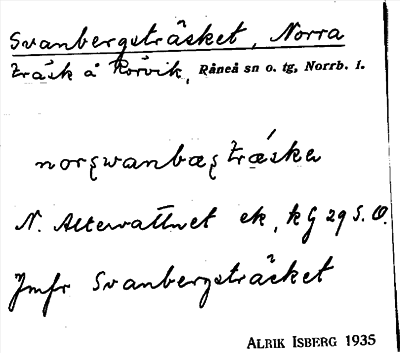 Svanbergsträsket, Norra
träsk å Rörvik, Råneå sn o. tg, Norrb. l.
N. Altervattnet ek, kG 29 S. O.
Jmfr Svanbergsträsket
ALRIK ISBERG 1935